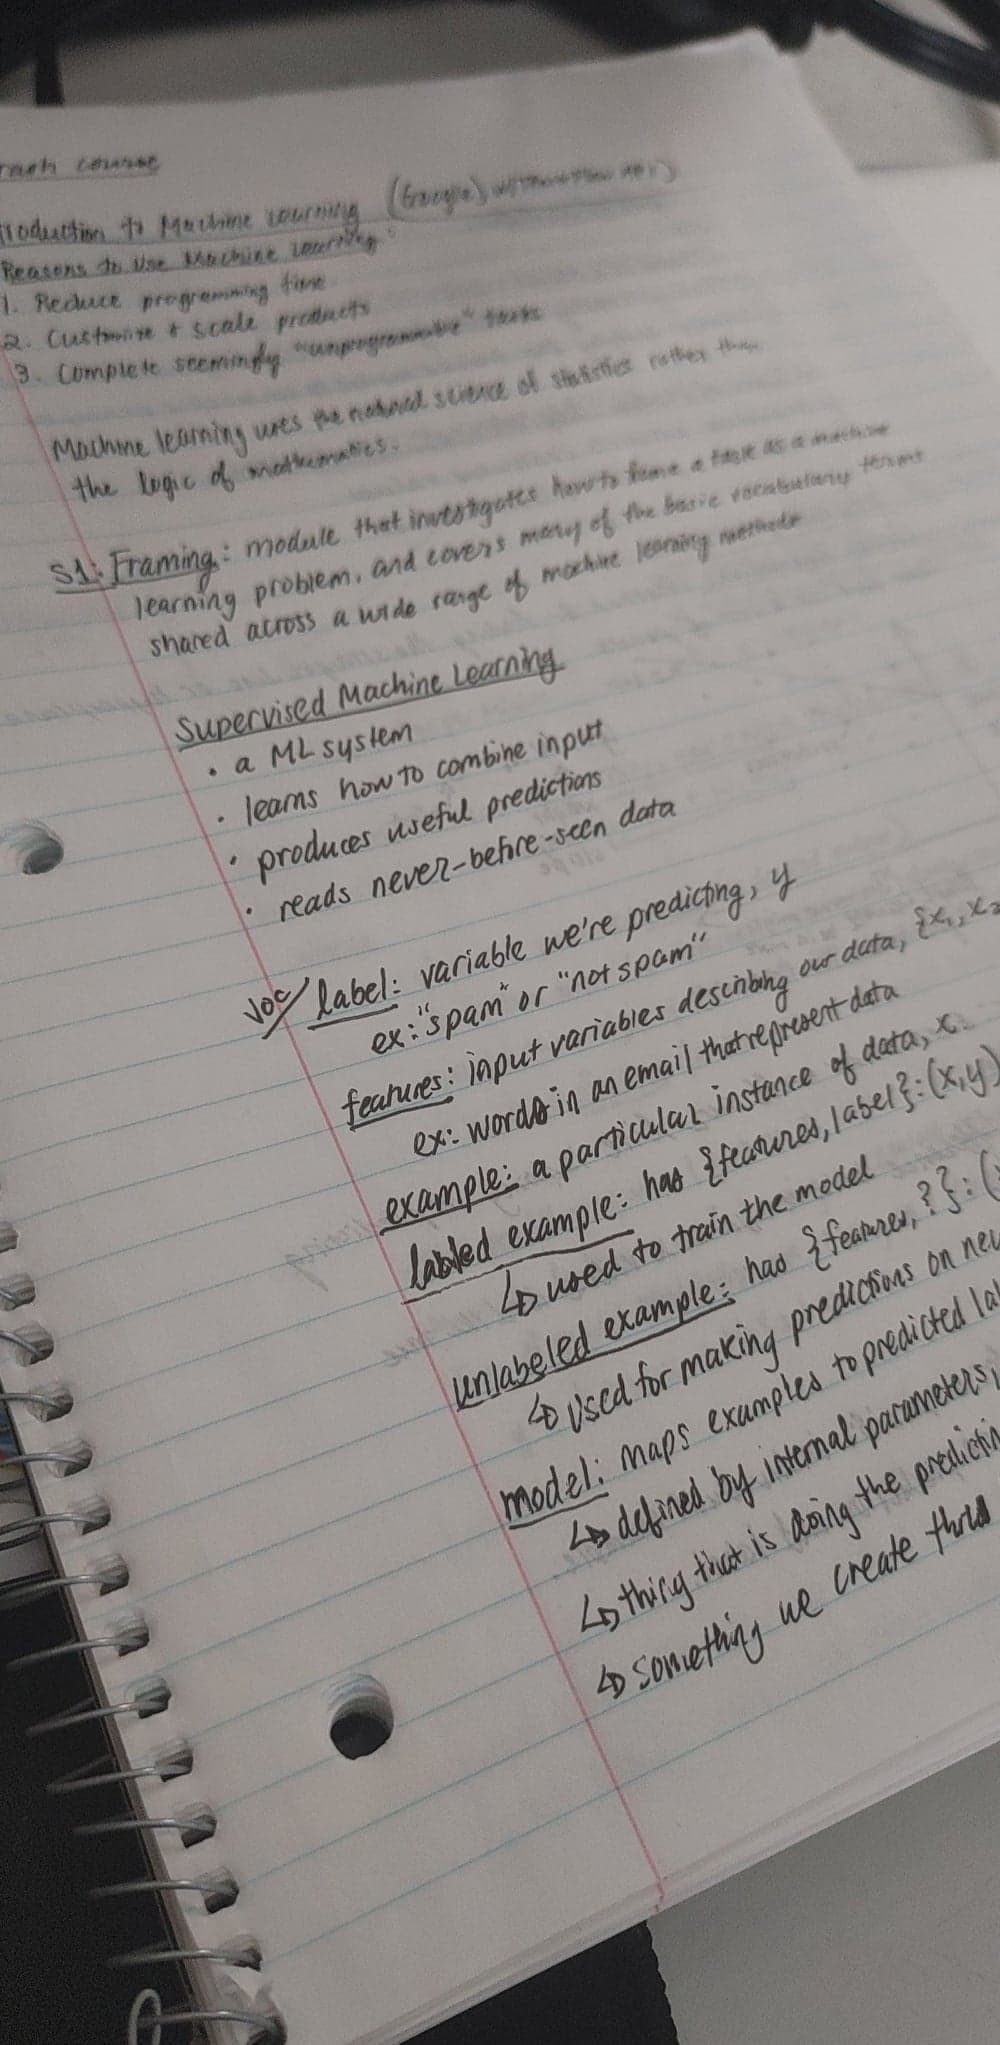 rash course
troduction to Machine Learning (Google)
Reasons to Use Machine Learning:
1. Reduce programming time
2. Customize & scale products
3. Complete seemingly "unprogrammable" tasks
Machine learning uses the natural science of statistics rather than
the logic of mathematics.
S1: Framing: module that investigates how to frame a task as a machine
learning problem, and covers many of the basic vocabulary terms
shared across a wide range of machine learning methods
Supervised Machine Learning
• a ML system
• learns how to combine input
• produces useful predictions
• reads never-before-seen data
voc/ label: variable we're predicting, y
ex: "spam" or "not spam"
features: input variables describing our data, {x₁, x₂
ex: words in an email that represent data
example: a particular instance of data, x
labled example: has {features, label}: (x,y)
↳ used to train the model
unlabeled example: has {features, ?}: (
↳ Used for making predictions on new
model: maps examples to predicted la
↳ defined by internal parameters,
↳ thing that is doing the predictin
↳ something we create